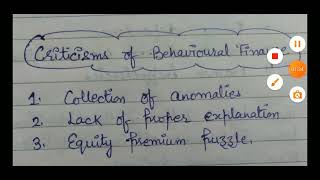 Criticisms of Behavioural Finance
1. Collection of anomalies
2. Lack of proper explanation
3. Equity premium puzzle.